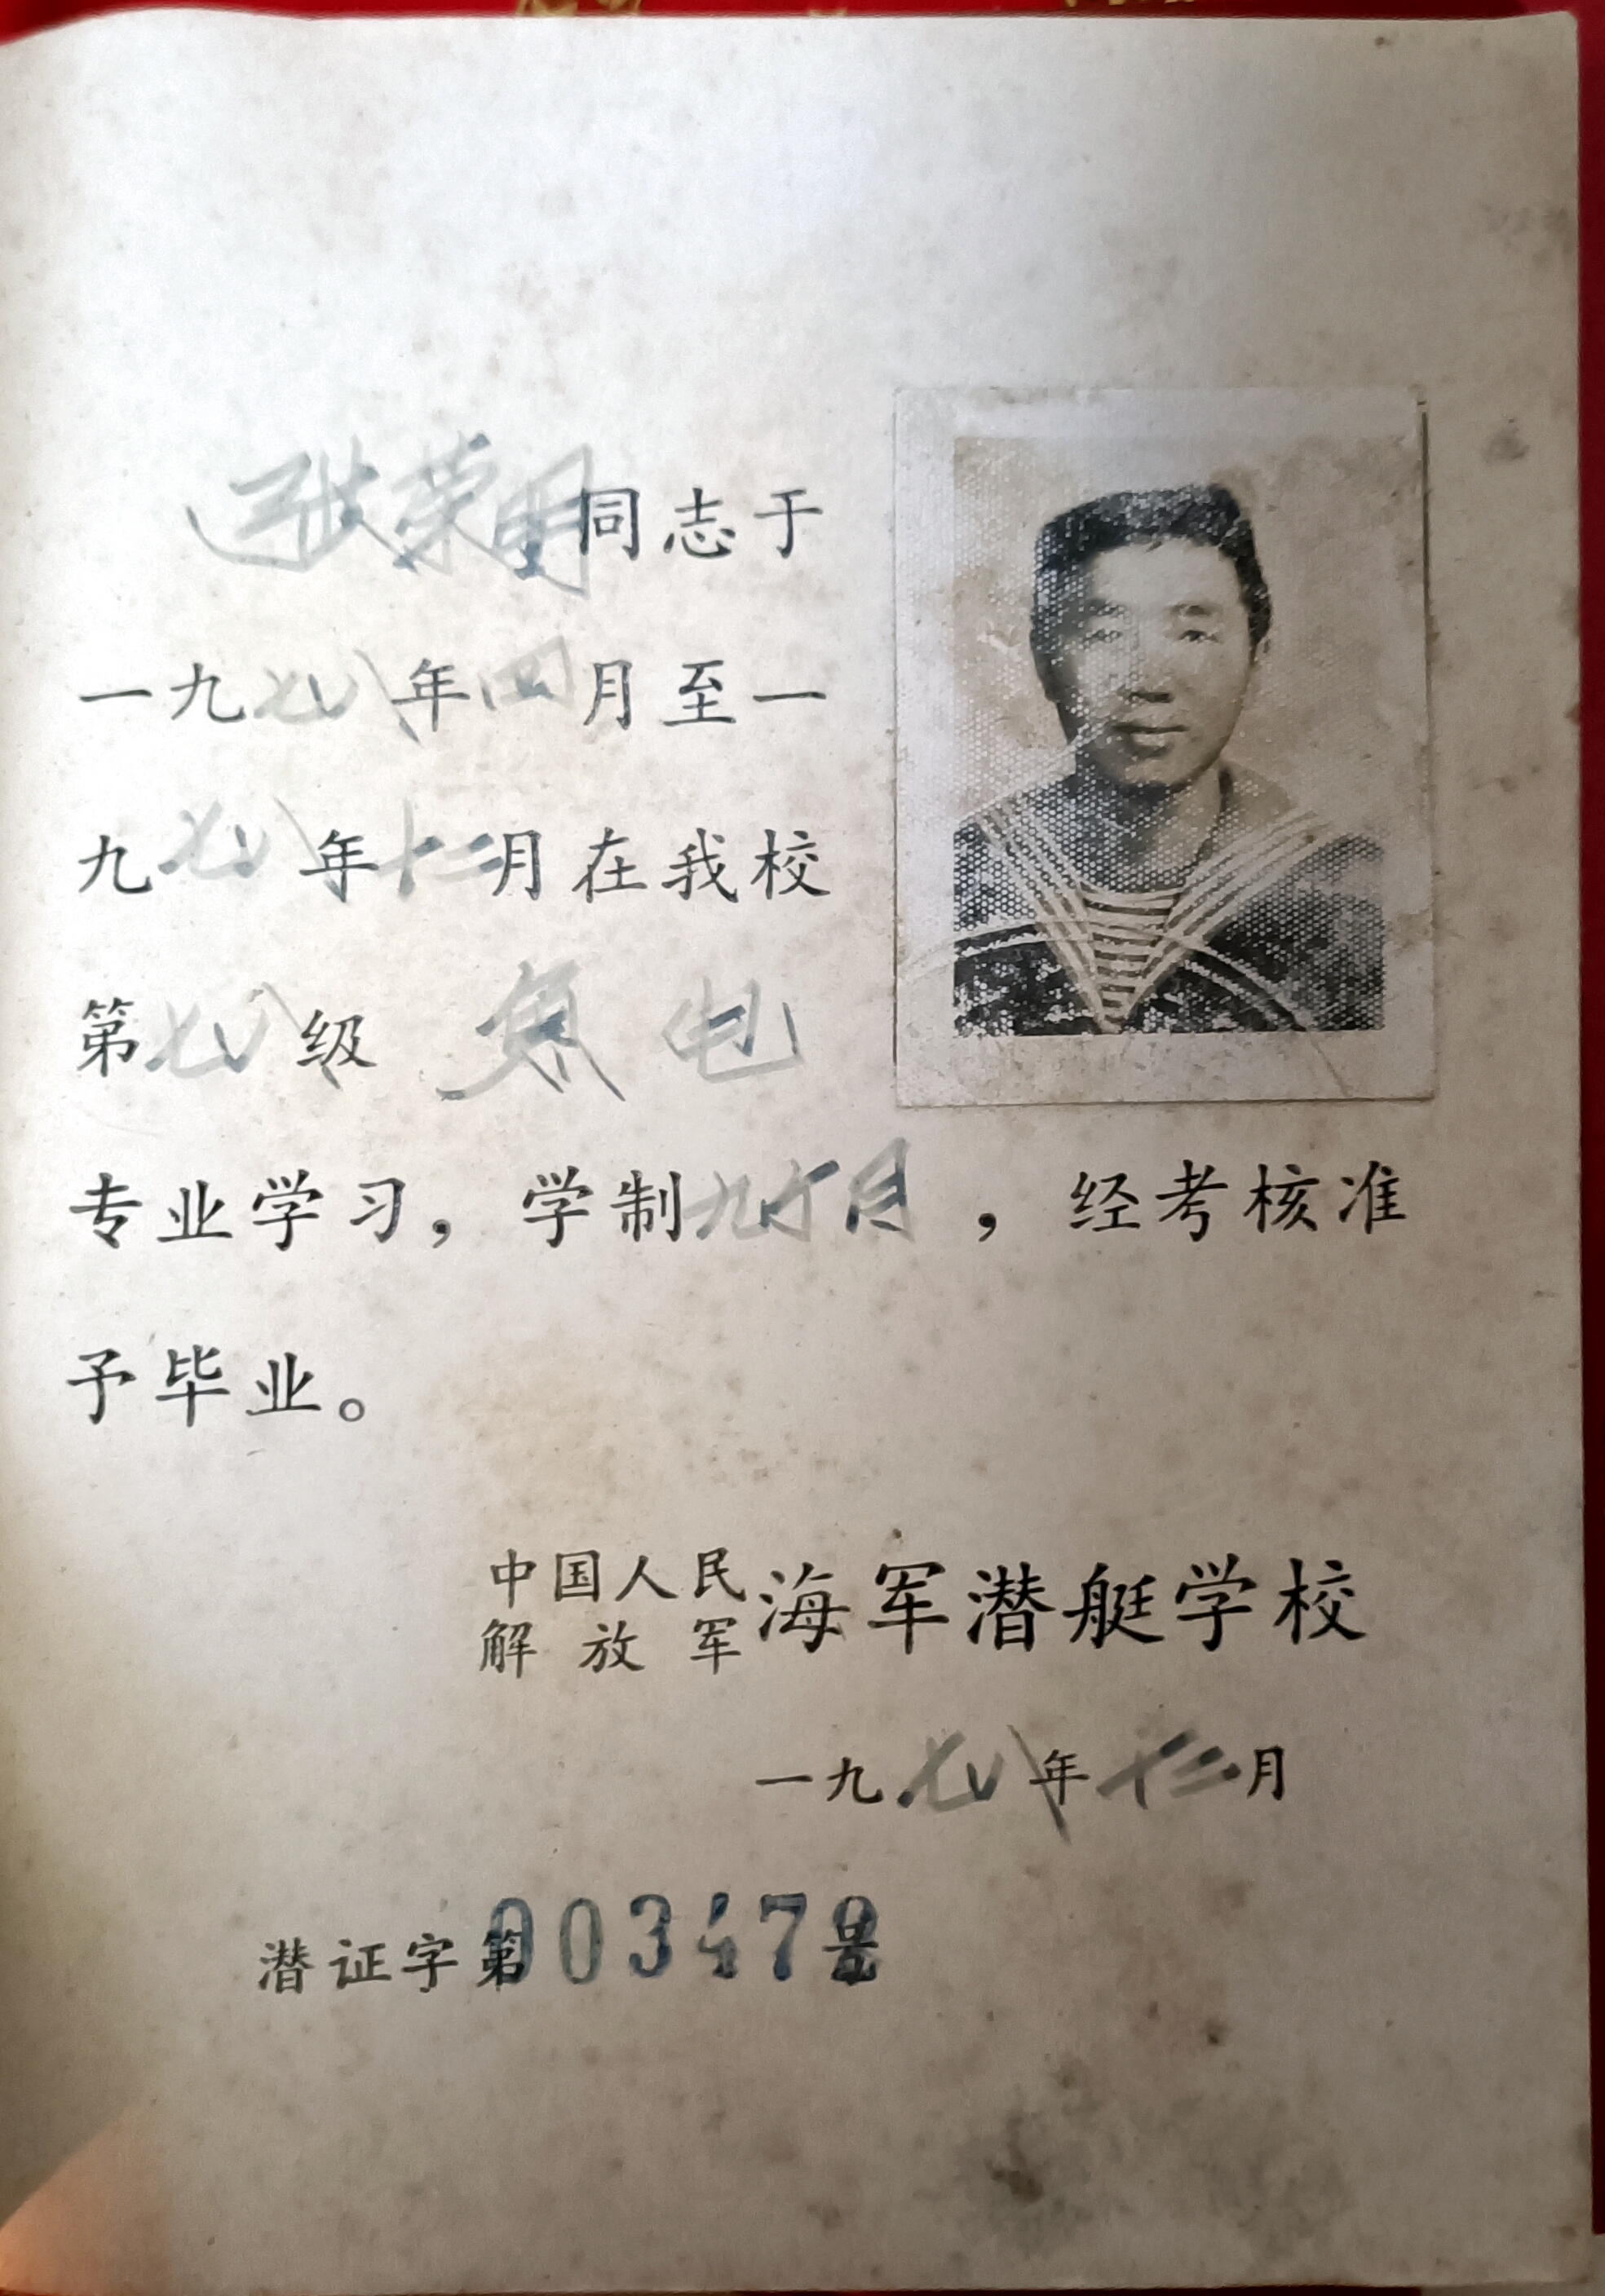 张荣明同志于
一九七八年四月至一
九七八年十二月在我校
第七八级 鱼电
专业学习，学制九个月，经考核准
予毕业。
中国人民
解放军
海军潜艇学校
一九七八年十二月
潜证字第003472号